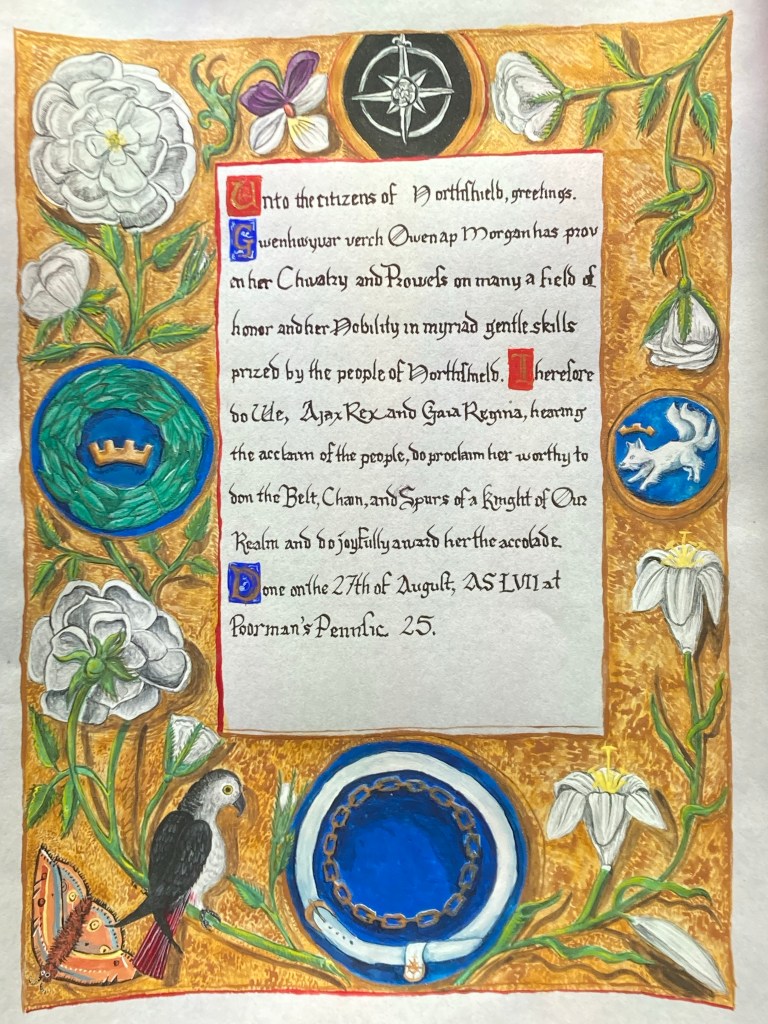 Unto the citizens of Northshield, greetings.
Gwenhwyvar verch Owen ap Morgan has prov
en her Chivalry and Prowess on many a field of
honor and her Nobility in myriad gentle skills
prized by the people of Northshield. Therefore
do We, Ajax Rex and Gaia Regina, hearing
the acclaim of the people, do proclaim her worthy to
don the Belt, Chain, and Spurs of a Knight of Our
Realm and do joyfully award her the accolade.
Done on the 27th of August, AS LVII at
Poorman's Pennsic 25.